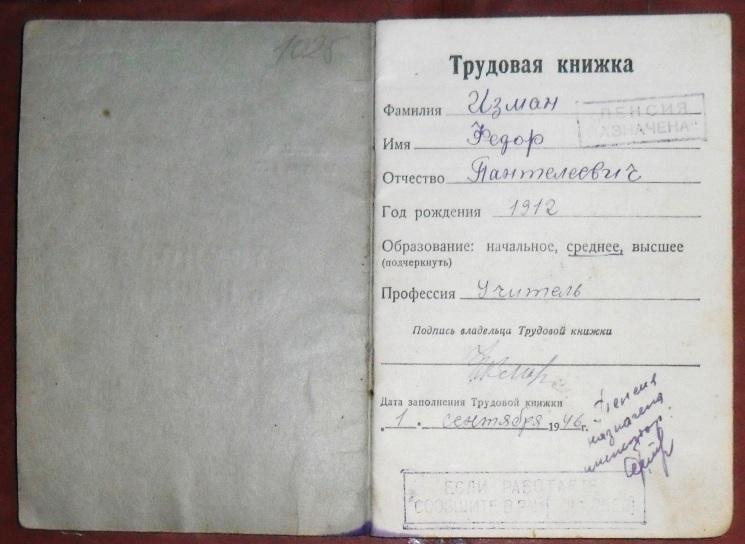 1025
Трудовая книжка
Фамилия Изман
ПЕНСИЯ
НАЗНАЧЕНА
Имя Федор
Отчество Пантелеевич
Год рождения 1912
Образование: начальное, среднее, высшее
(подчеркнуть)
Профессия Учитель
Подпись владельца Трудовой книжки
Дата заполнения Трудовой книжки
1 сентября 1946 г.
Пенсия
назначена
инспектор:
ЕСЛИ РАБОТАЕТЕ
СООБЩИТЕ В